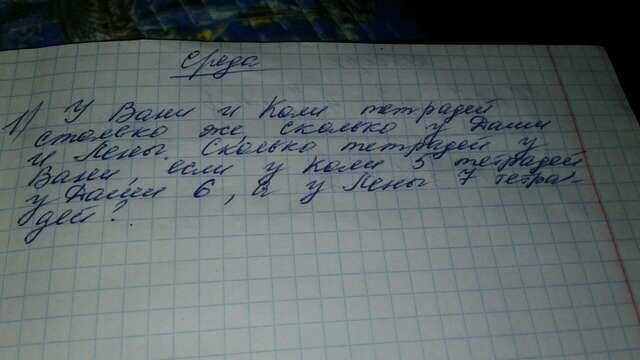 Среда
1) У Вани и Коли тетрадей
столько же сколько у Даши
и Лены. Сколько тетрадей у
Вани, если у Коли 5 тетрадей
у Даши 6, а у Лены 7 тетра-
дей?